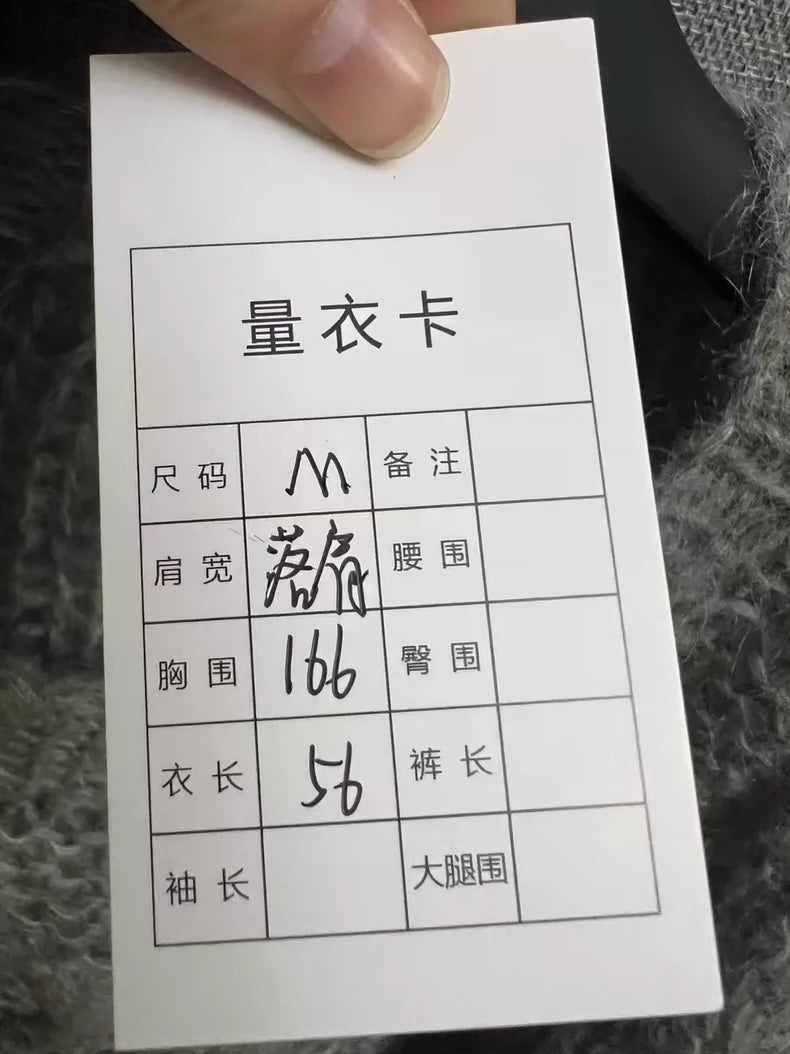 量衣卡
尺码 M 备注
肩宽 落肩 腰围
胸围 166 臀围
衣长 56 裤长
袖长 大腿围